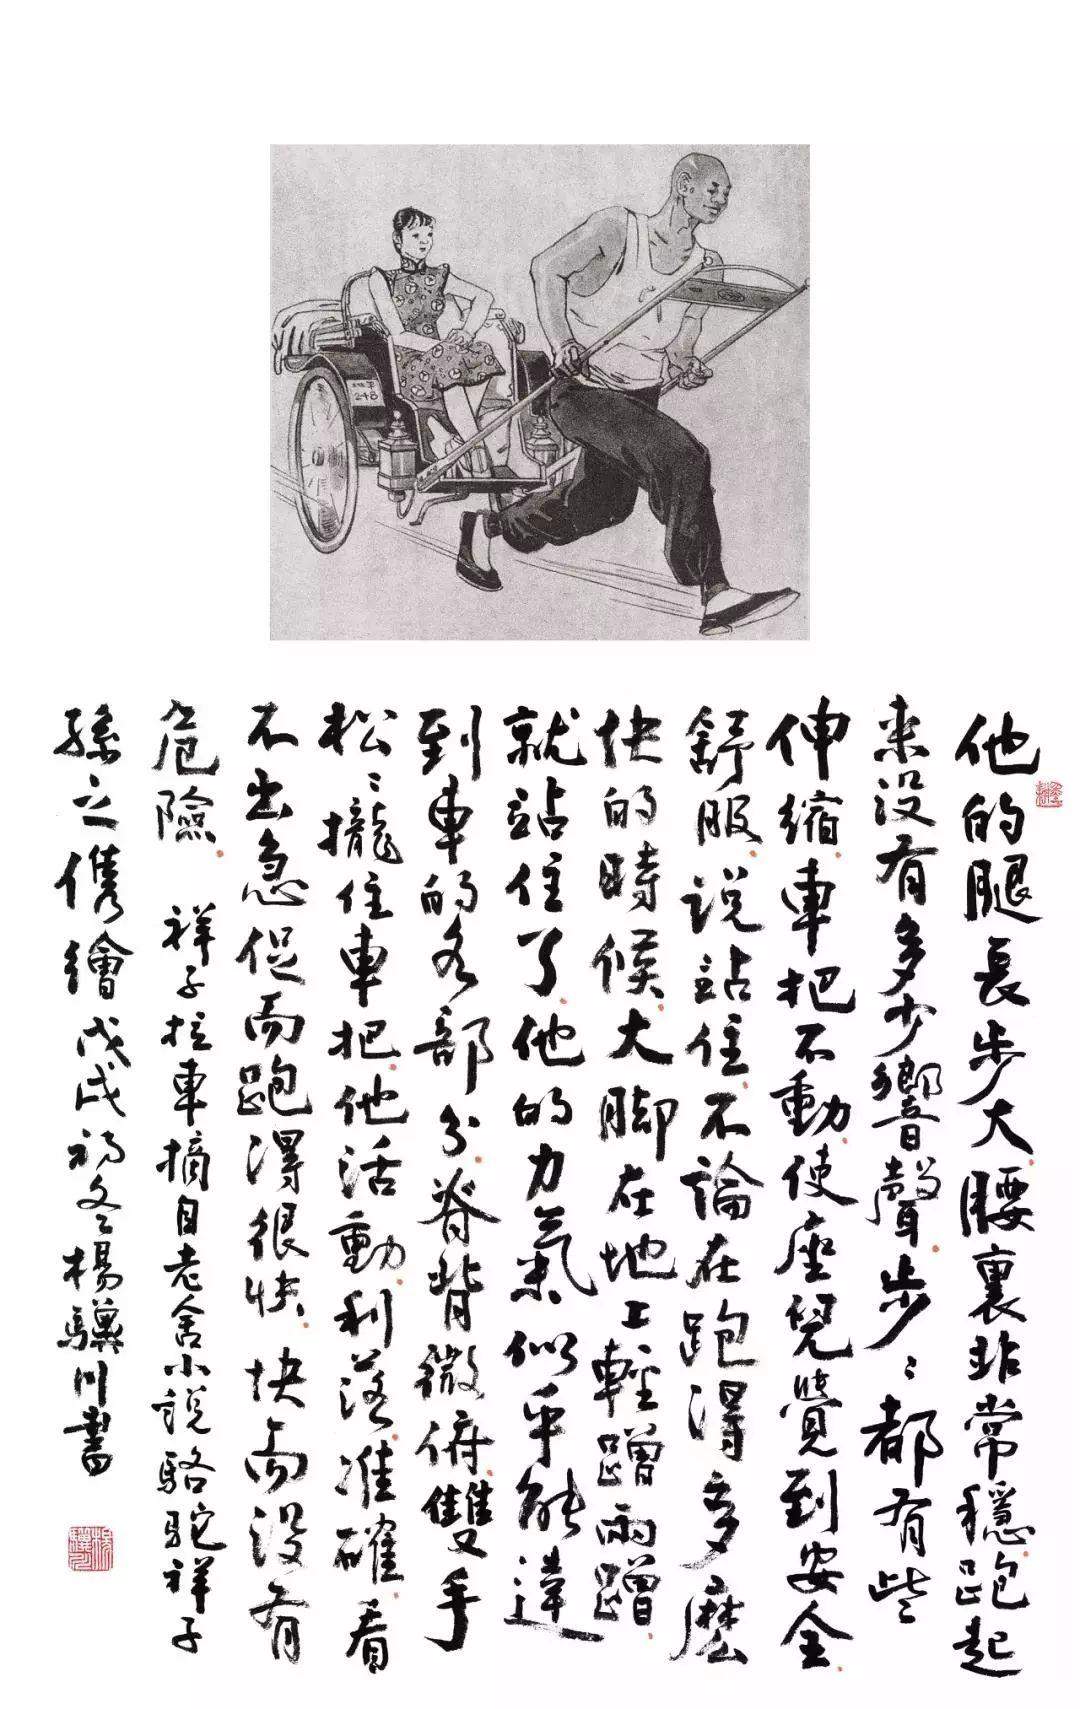 他的腿長步大腰裏非常穩跑起
来没有多少響聲步〻都有些
伸縮車把不動使座兒覺到安全
舒服说站住不論在跑得多麽
快的時候大脚在地上輕蹭兩蹭
就站住了他的力氣似乎能達
到車的各部分脊背微俯雙手
松〻攏住車把他活動利落准確看
不出急促而跑得很快快而没有
危險 祥子拉車摘自老舍小説駱駝祥子
孫之儁繪戊戌初冬楊驥川書